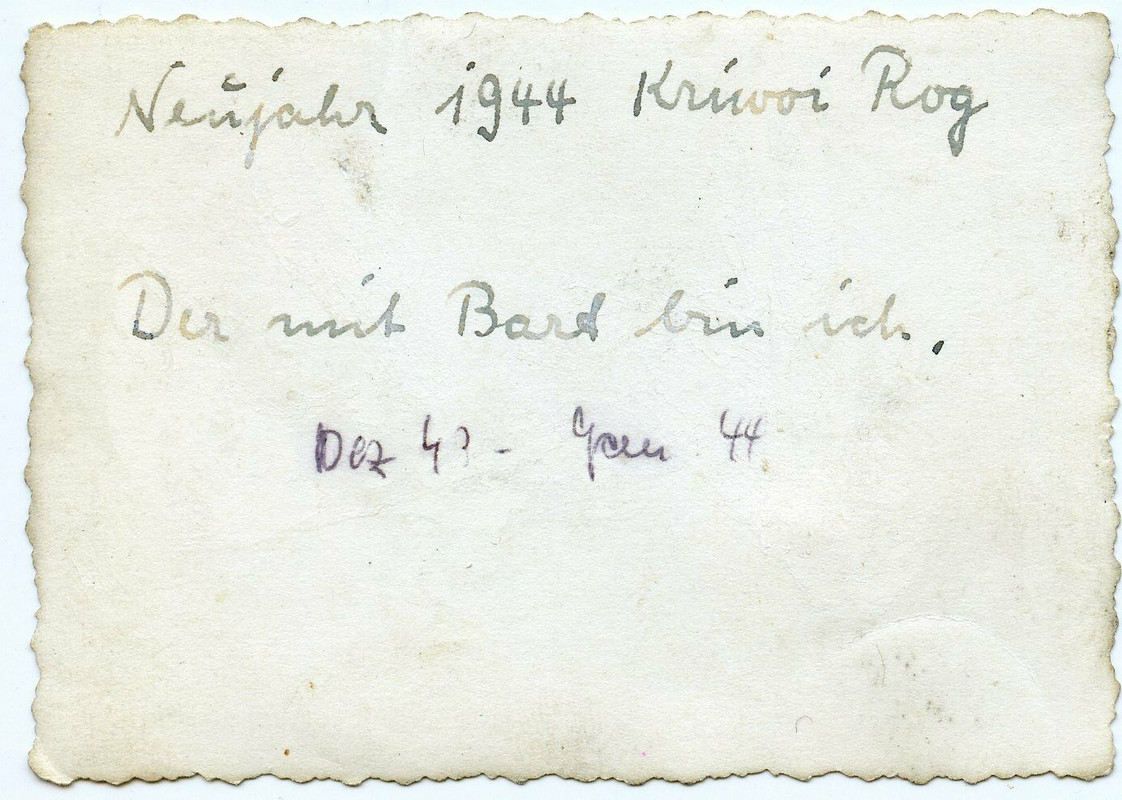 Neujahr 1944 Kriwoi Rog
Der mit Bart bin ich.
Dez 43 - Jan 44